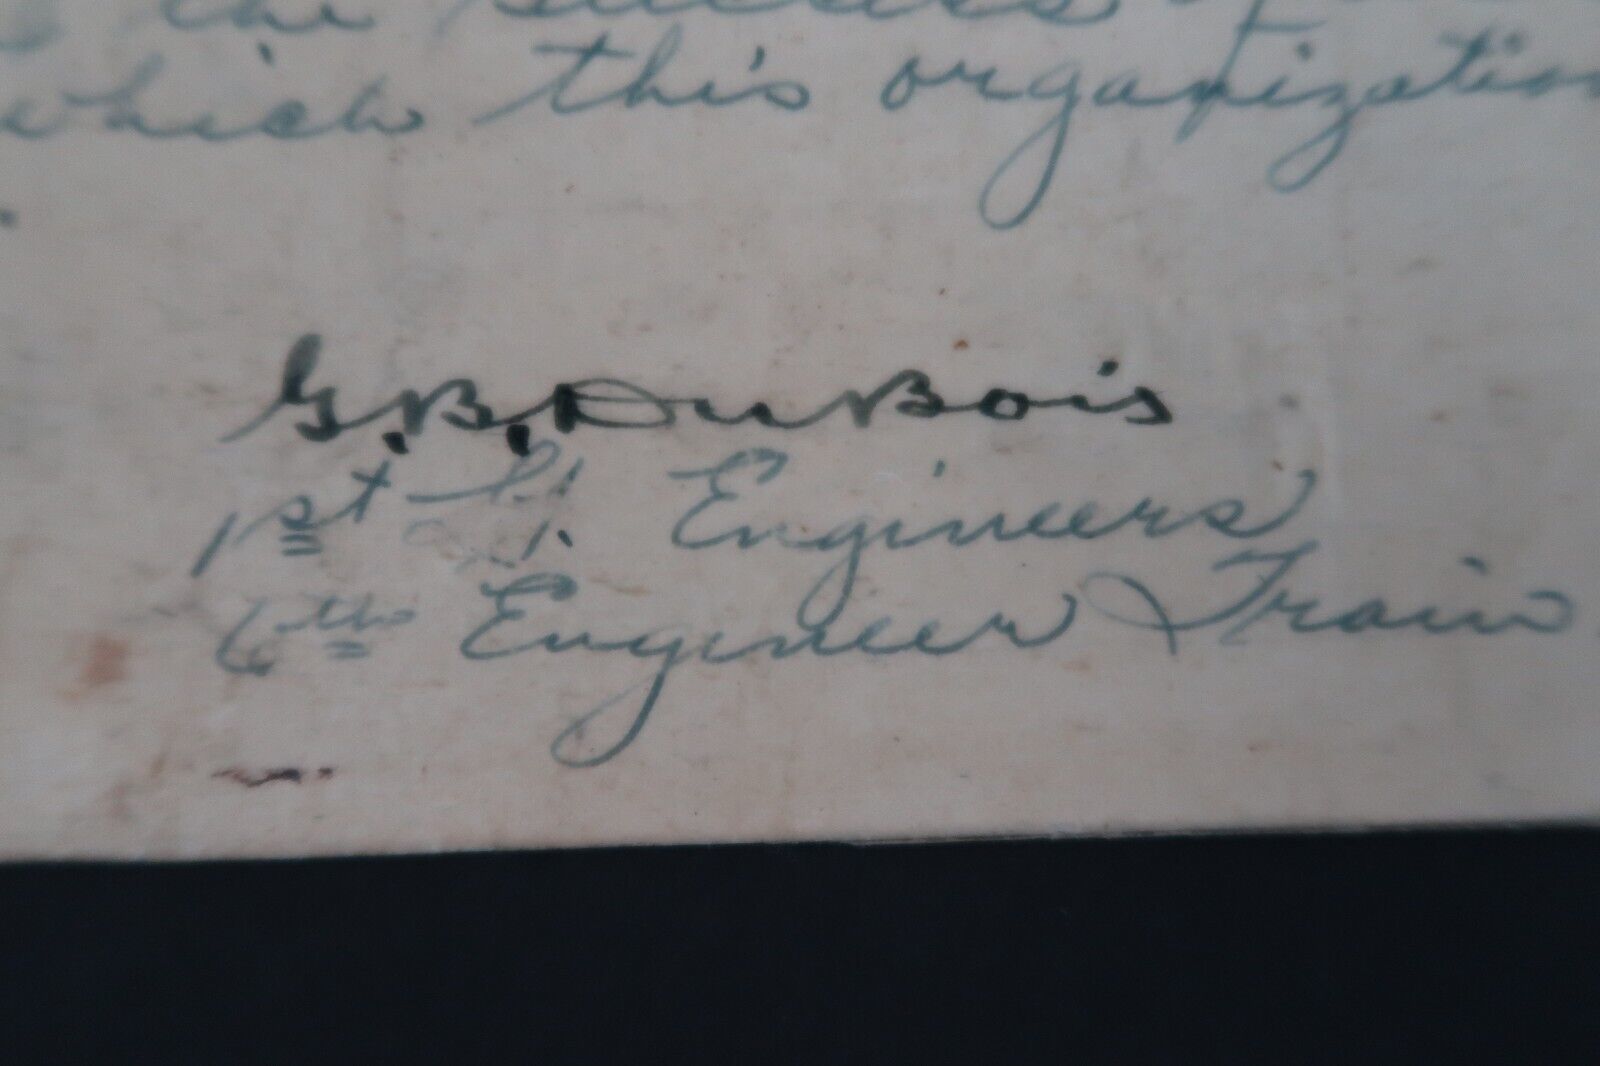 the success of
which this organization
G.B. DuBois
1st Lt. Engineers
6th Engineer Train.